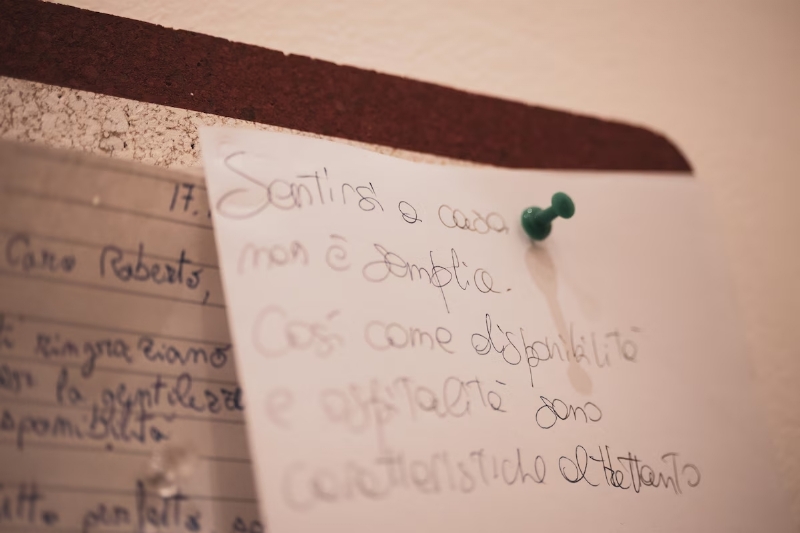 17.
Caro Roberto,
ti ringraziano
la gentilezza
tutto perfetto
Sentirsi a casa
non è semplice.
Così come disponibilità
e ospitalità sono
caratteristiche altrettanto